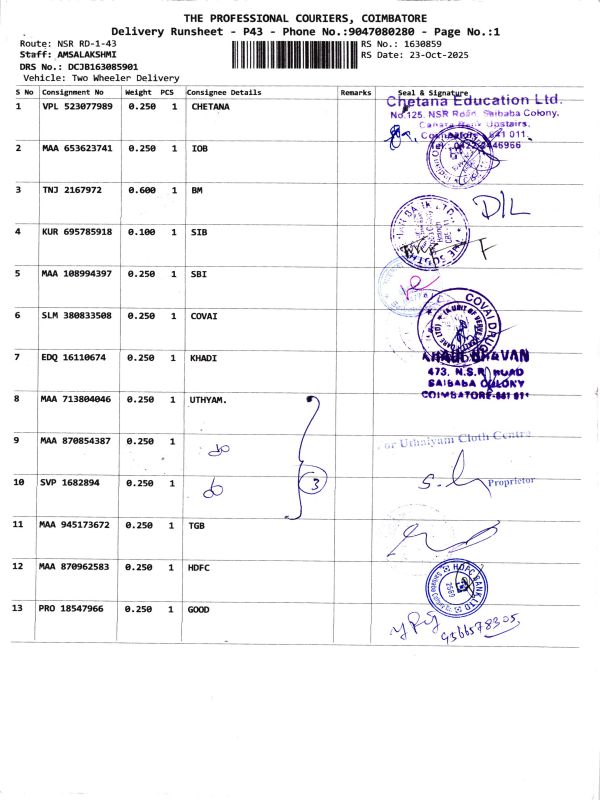 THE PROFESSIONAL COURIERS, COIMBATORE
Delivery Runsheet - P43 - Phone No.:9047080280 - Page No.:1
Route: NSR RD-1-43 RS No.: 1630859
Staff: AMSALAKSHMI RS Date: 23-Oct-2025
DRS No.: DCJB163085901
Vehicle: Two Wheeler Delivery
S No Consignment No Weight PCS Consignee Details Remarks Seal & Signature
1 VPL 523077989 0.250 1 CHETANA
Chetana Education Ltd.
No.125, NSR Road, Saibaba Colony,
Canara Bank Upstairs,
Coimbatore - 641 011.
Tel: 0422-2446966
2 MAA 653623741 0.250 1 IOB
3 TNJ 2167972 0.600 1 BM
D/L
4 KUR 695785918 0.100 1 SIB
5 MAA 108994397 0.250 1 SBI
6 SLM 380833508 0.250 1 COVAI
COVAI DRUG
(A UNIT OF
7 EDQ 16110674 0.250 1 KHADI
KHADI BHAVAN
473, N.S.R. ROAD
SAIBABA COLONY
COIMBATORE-641 011
8 MAA 713804046 0.250 1 UTHYAM.
9 MAA 870854387 0.250 1 do
For Uthaiyam Cloth Centre
10 SVP 1682894 0.250 1 do 3
Proprietor
11 MAA 945173672 0.250 1 TGB
12 MAA 870962583 0.250 1 HDFC
HDFC BANK LTD
13 PRO 18547966 0.250 1 GOOD
9566578305